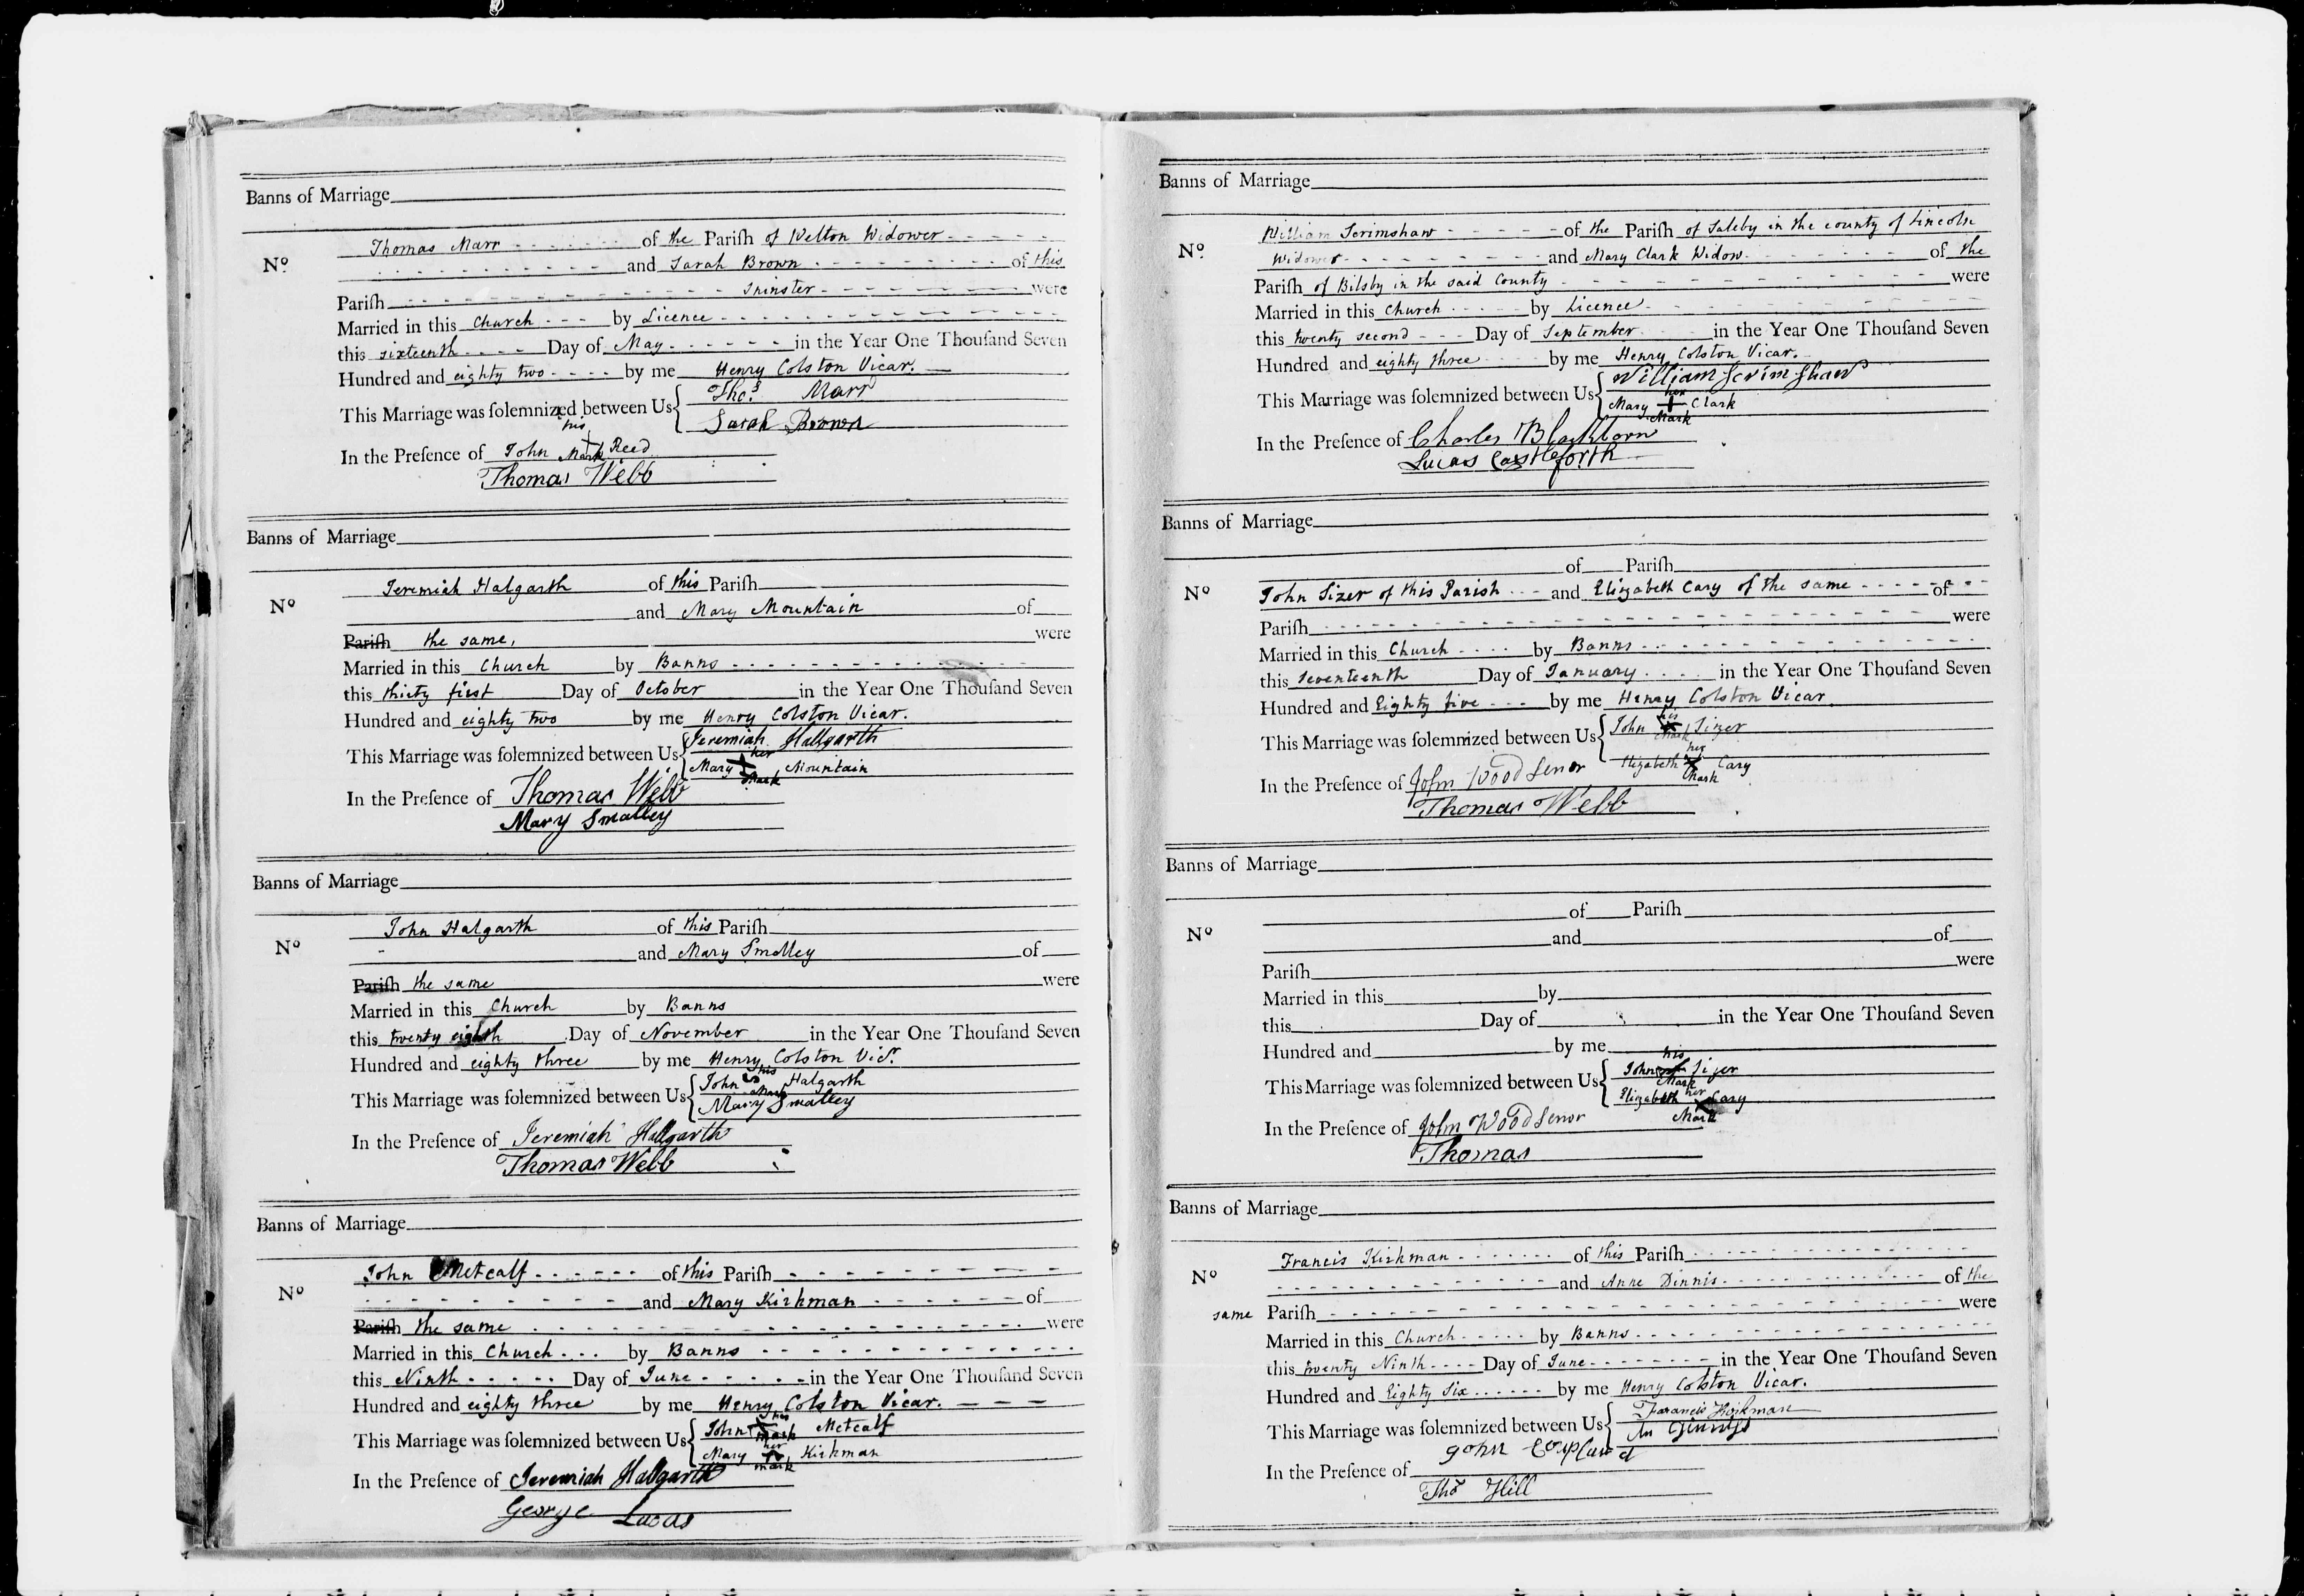 Banns of Marriage
Thomas Marr of the Pariſh of Welton Widower
Nº
and Sarah Brown of this
Pariſh Spinster were
Married in this Church by Licence
this sixteenth Day of May in the Year One Thouſand Seven
Hundred and eighty two by me Henry Colston Vicar.
This Marriage was ſolemnized between Us { Thos. Marr
Sarah Brown
In the Preſence of John his Mark Reed
Thomas Webb
Banns of Marriage
Jeremiah Halgarth of this Pariſh
Nº
and Mary Mountain of
Pariſh the same, were
Married in this Church by Banns
this thirty first Day of October in the Year One Thouſand Seven
Hundred and eighty two by me Henry Colston Vicar.
This Marriage was ſolemnized between Us { Jeremiah Hallgarth
Mary her Mark Mountain
In the Preſence of Thomas Webb
Mary Smalley
Banns of Marriage
John Halgarth of this Pariſh
Nº
and Mary Smalley of
Pariſh the same were
Married in this Church by Banns
this twenty eighth Day of November in the Year One Thouſand Seven
Hundred and eighty three by me Henry Colston Vicr.
This Marriage was ſolemnized between Us { John his Mark Halgarth
Mary Smalley
In the Preſence of Jeremiah Hallgarth
Thomas Webb
Banns of Marriage
John Metcalf of this Pariſh
Nº
and Mary Kirkman of
Pariſh the same were
Married in this Church by Banns
this Ninth Day of June in the Year One Thouſand Seven
Hundred and eighty three by me Henry Colston Vicar.
This Marriage was ſolemnized between Us { John his mark Metcalf
Mary her mark Kirkman
In the Preſence of Jeremiah Hallgarth
George Lucas
Banns of Marriage
William Scrimshaw of the Pariſh of Saleby in the county of Lincoln
Nº
Widower and Mary Clark Widow of the
Pariſh of Bilsby in the said County were
Married in this Church by Licence
this twenty second Day of September in the Year One Thouſand Seven
Hundred and eighty three by me Henry Colston Vicar.
This Marriage was ſolemnized between Us { William Scrimshaw
Mary her Mark Clark
In the Preſence of Charles Blackborn
Lucas Castleforth
Banns of Marriage
of Pariſh
Nº
John Sizer of this Parish and Elizabeth Cary of the same of
Pariſh were
Married in this Church by Banns
this Seventeenth Day of January in the Year One Thouſand Seven
Hundred and Eighty five by me Henry Colston Vicar
This Marriage was ſolemnized between Us { John his Mark Sizer
Elizabeth her Mark Cary
In the Preſence of John Wood Senor
Thomas Webb
Banns of Marriage
of Pariſh
Nº
and of
Pariſh were
Married in this by
this Day of in the Year One Thouſand Seven
Hundred and by me
This Marriage was ſolemnized between Us { John his Mark Sizer
Elizabeth her Mark Cary
In the Preſence of John Wood Senor
Thomas
Banns of Marriage
Francis Kirkman of this Pariſh
Nº
and Anne Dinnis of the
same Pariſh were
Married in this Church by Banns
this twenty Ninth Day of June in the Year One Thouſand Seven
Hundred and Eighty Six by me Henry Colston Vicar.
This Marriage was ſolemnized between Us { Farancis Kirkman
An
John Coupland
In the Preſence of
Thos Hill